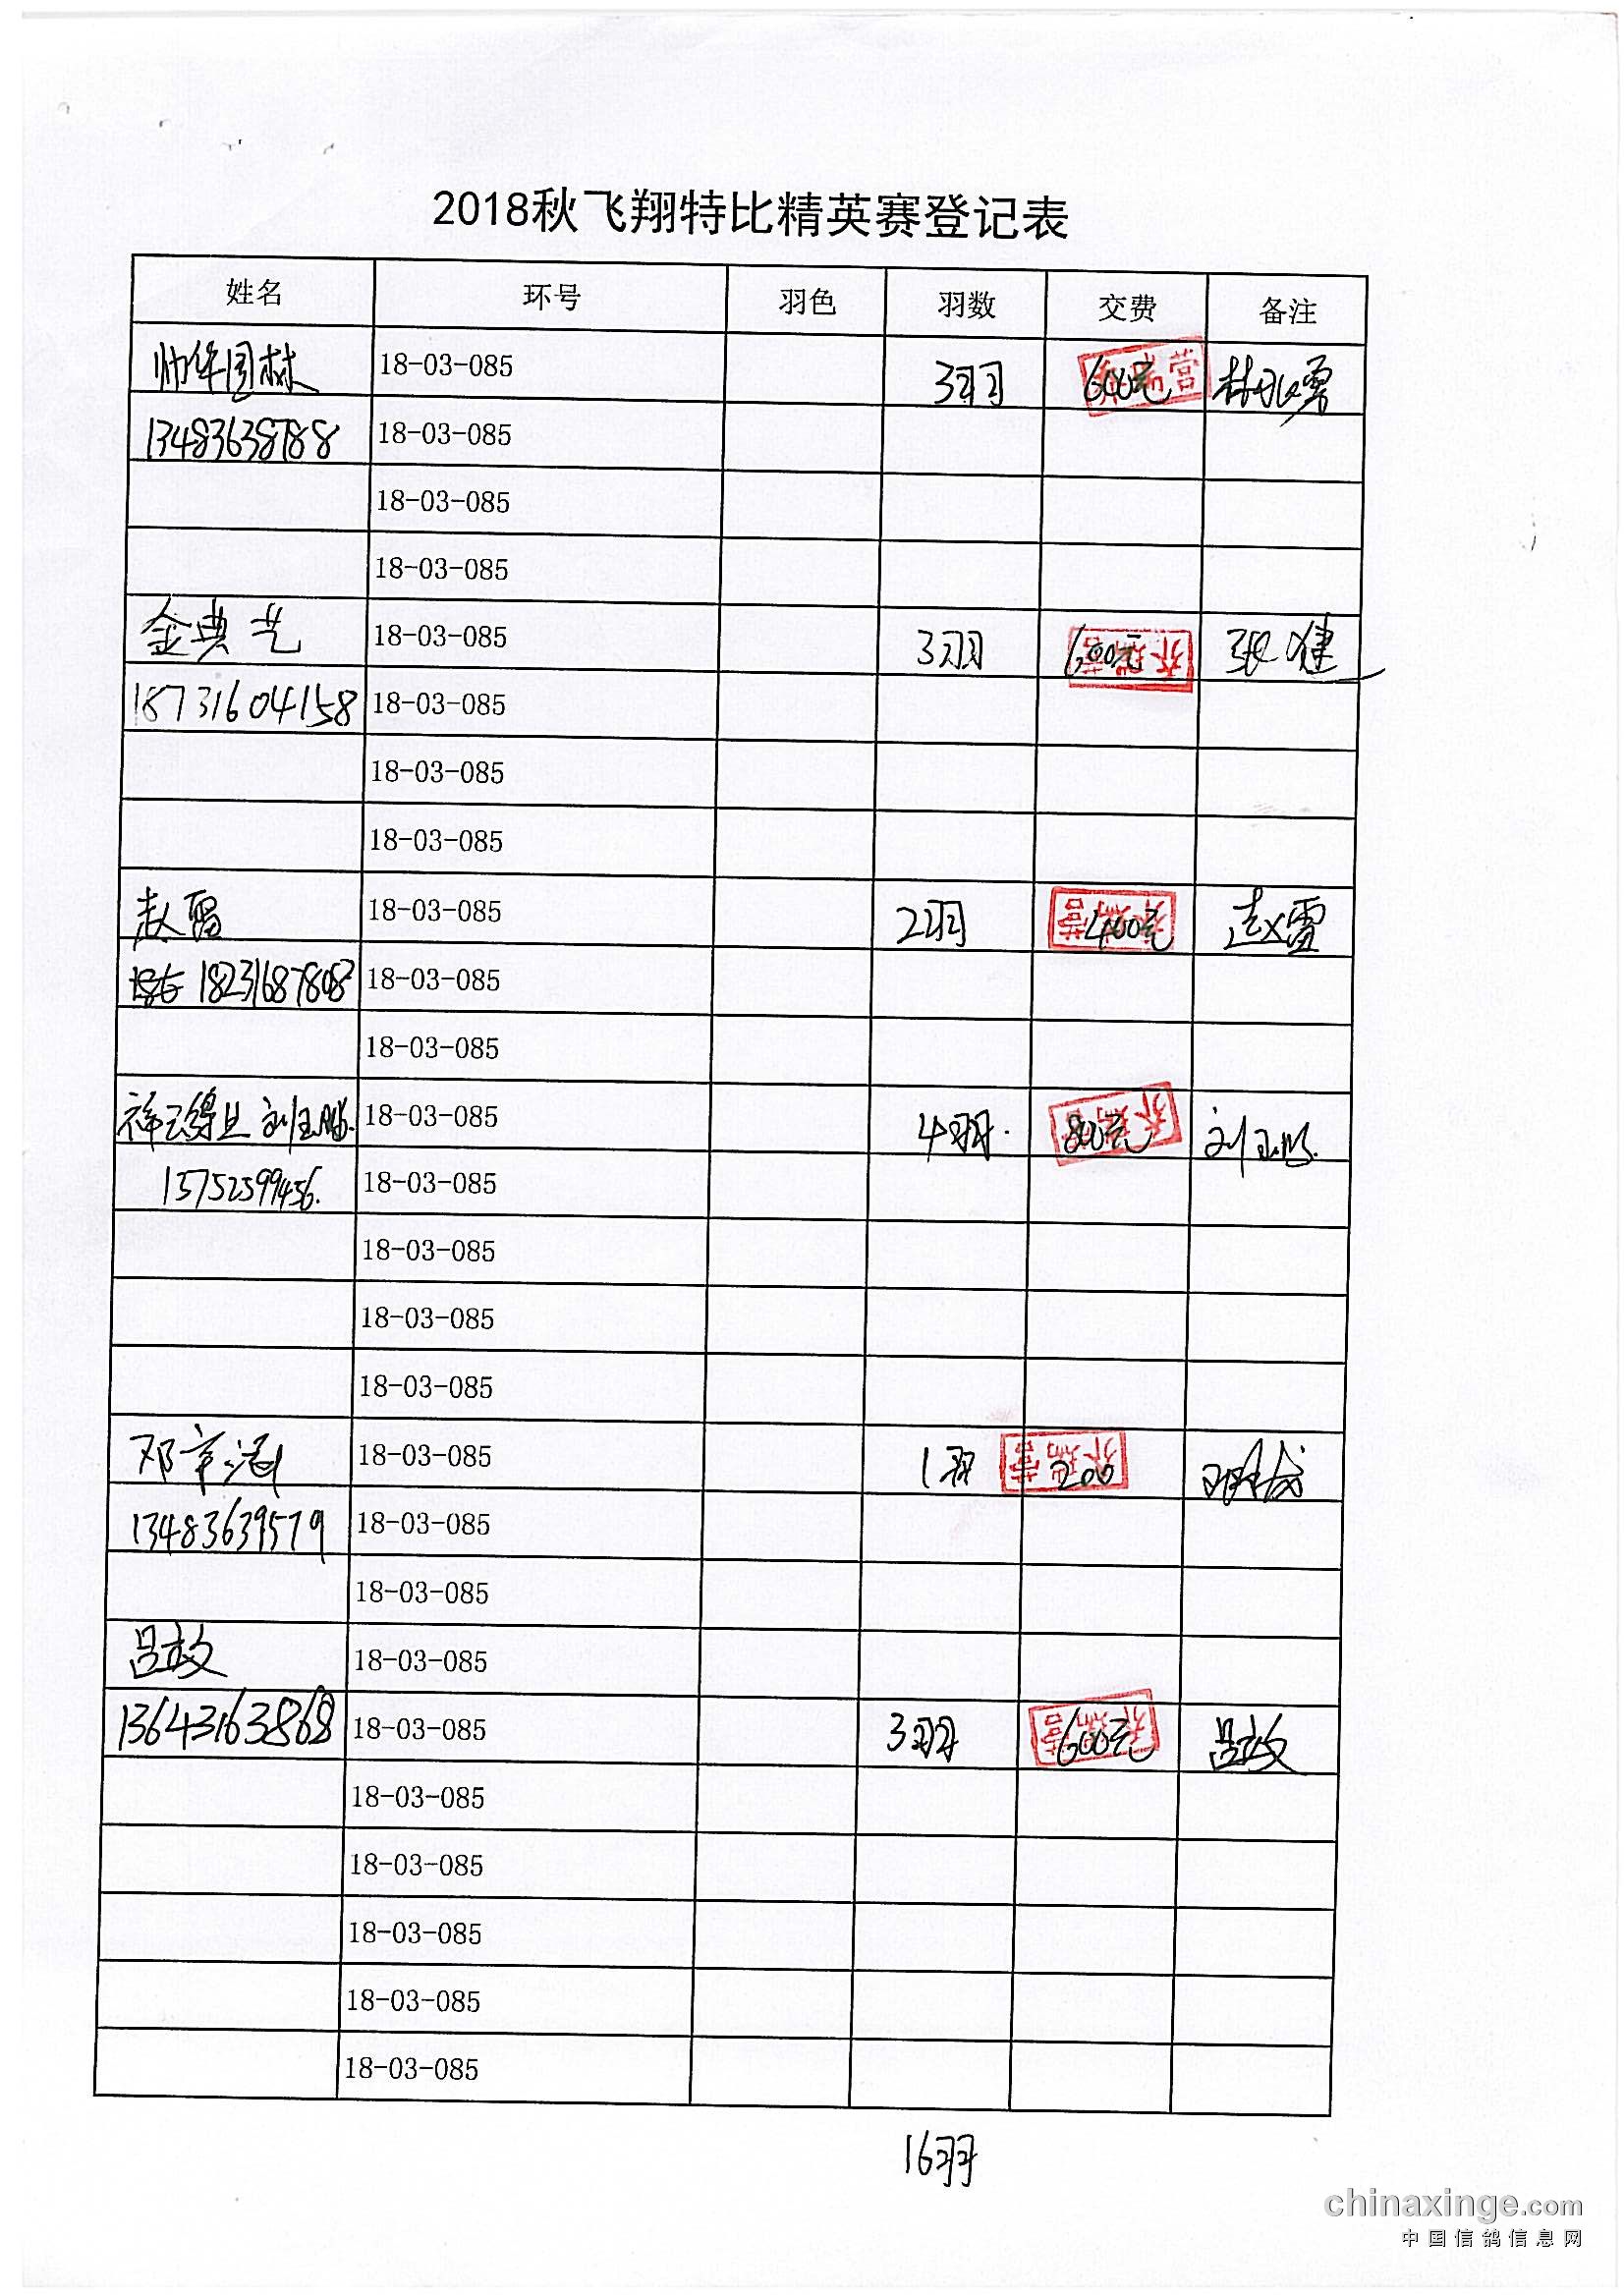 2018秋飞翔特比精英赛登记表
姓名 环号 羽色 羽数 交费 备注
帅华园林 18-03-085 3羽 600元 林永勇
13483638788 18-03-085
18-03-085
18-03-085
金典艺 18-03-085 3羽 600元 张健
18731604158 18-03-085
18-03-085
18-03-085
赵雷 18-03-085 2羽 400元 赵雷
18231687808 18-03-085
18-03-085
祥云 刘玉 18-03-085 4羽. 800元 刘玉
13752599456. 18-03-085
18-03-085
18-03-085
18-03-085
邓 18-03-085 1羽 200
13483639579 18-03-085
18-03-085
吕政 18-03-085
13643163868 18-03-085 3羽 600元 吕政
18-03-085
18-03-085
18-03-085
18-03-085
18-03-085
16羽
chinaxinge.com
中国信鸽信息网